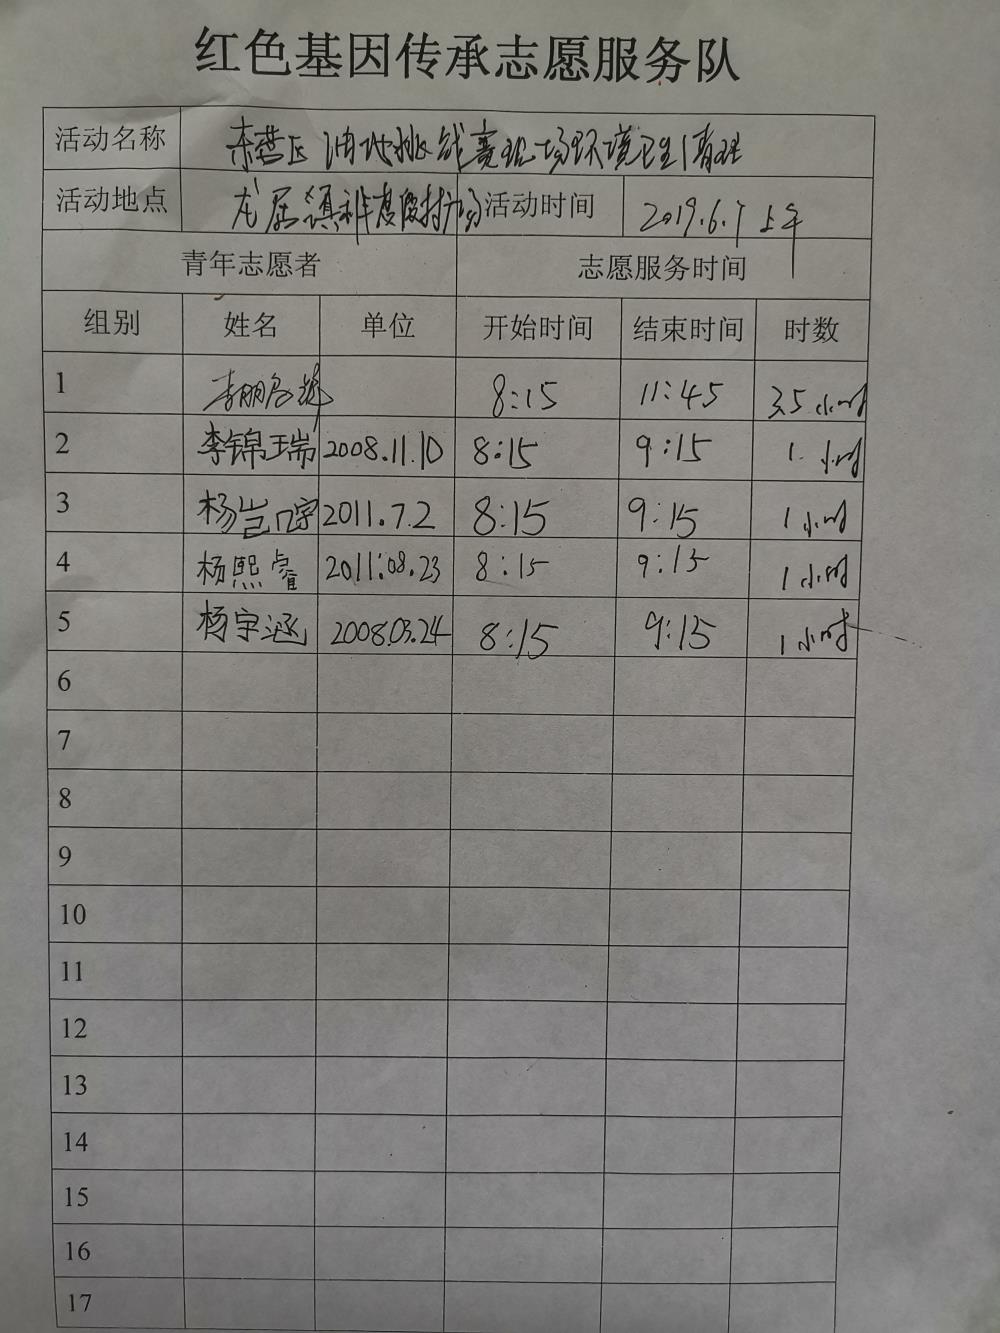 红色基因传承志愿服务队
活动名称 东营区油地挑战赛现场环境卫生清理
活动地点 龙居镇 度假村广场 活动时间 2019.6.9 上午
青年志愿者 志愿服务时间
组别 姓名 单位 开始时间 结束时间 时数
1 8:15 11:45 3.5小时
2 李锦瑞 2008.11.10 8:15 9:15 1小时
3 杨 宇 2011.7.2 8:15 9:15 1小时
4 杨熙睿 2011.08.23 8:15 9:15 1小时
5 杨宇涵 2008.03.24 8:15 9:15 1小时
6
7
8
9
10
11
12
13
14
15
16
17